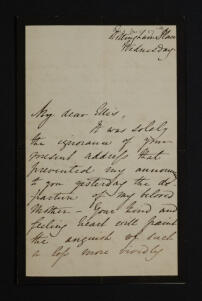 Wednesday
My dear Ellis,
It was solely
the ignorance of your
present address that
prevented my announcing
to you yesterday the de
parture of my blessed
Mother – Your kind and
feeling heart will paint
the anguish of such
a loss more vividly